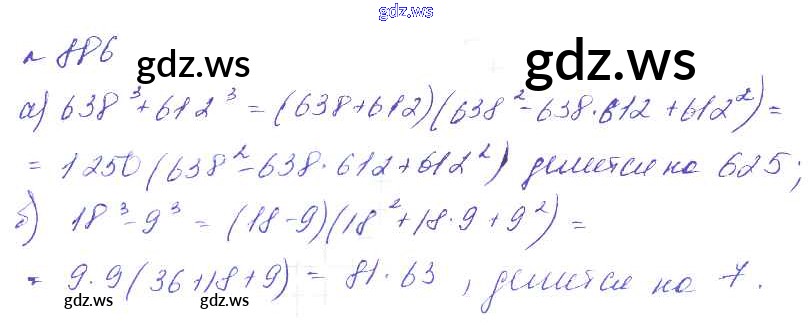 gdz.ws
№ 886
gdz.ws gdz.ws
а) 638³+612³ = (638+612)(638²-638·612+612²)=
= 1250(638²-638·612+612²) делится на 625;
б) 18³-9³ = (18-9)(18²+18·9+9²)=
= 9·9(36+18+9) = 81·63, делится на 7.
gdz.ws gdz.ws gdz.ws